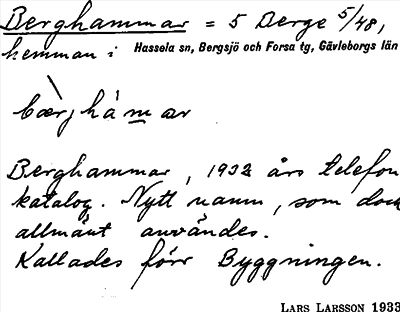 Berghammar = 5 Berge 5/48,
hemman i Hassela sn, Bergsjö och Forsa tg, Gävleborgs län
Berghammar, 1932 års telefon
katalog. Nytt namn, som dock
allmänt användes.
Kallades förr Byggningen.
LARS LARSSON 1933